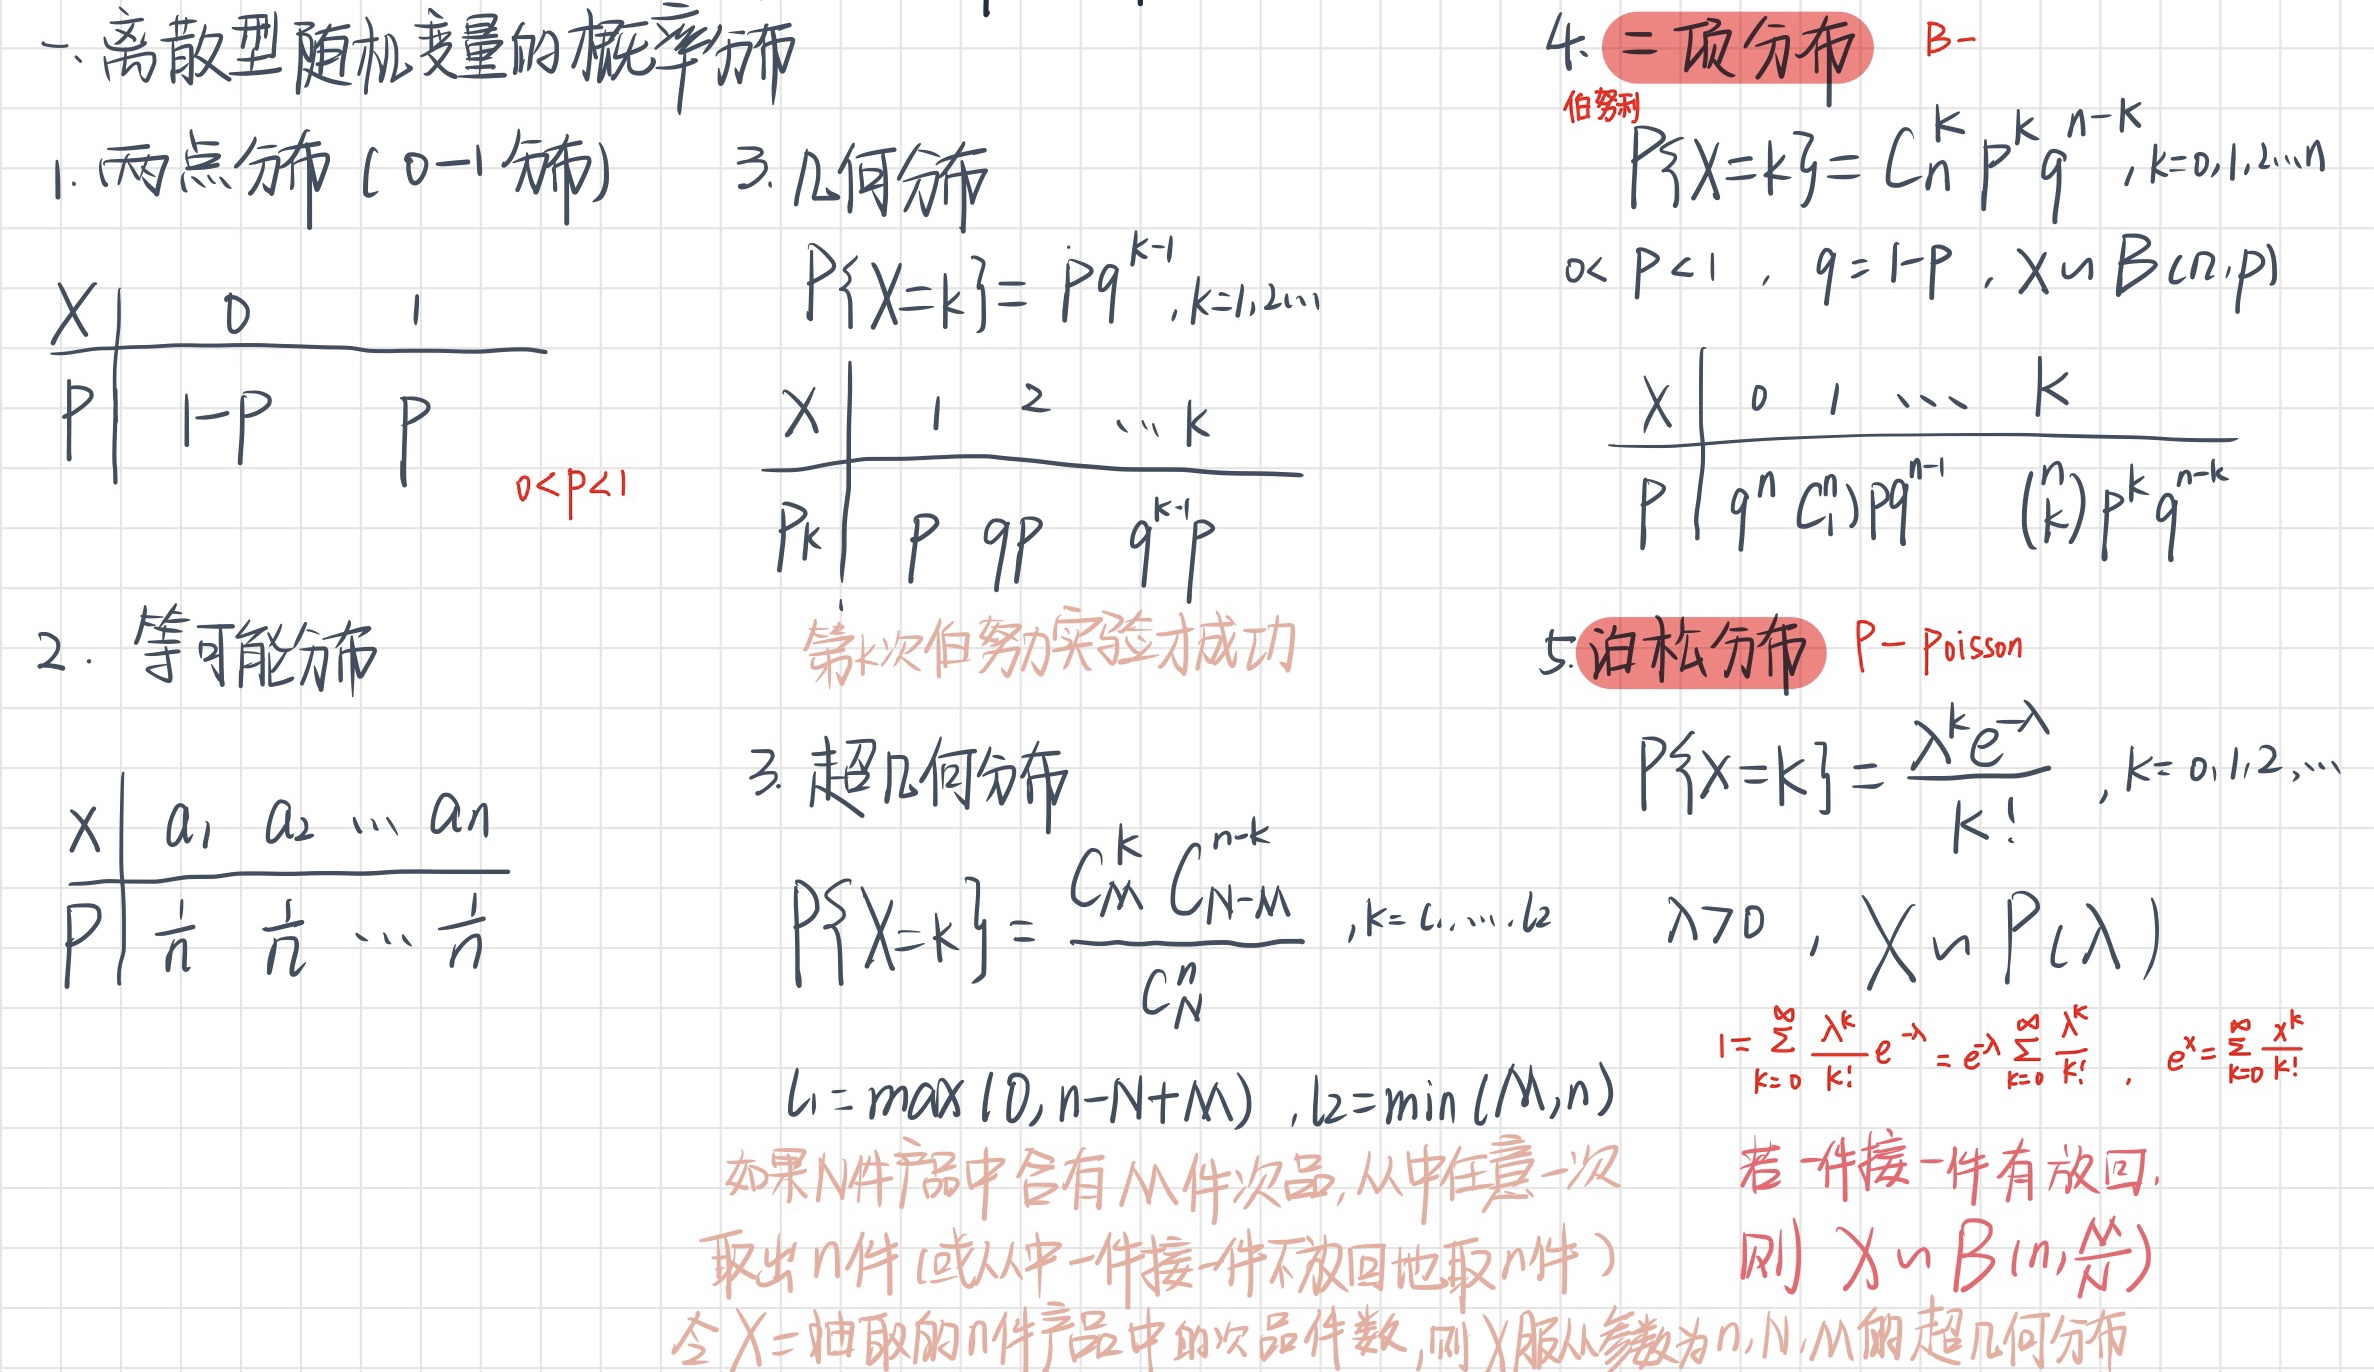 一、离散型随机变量的概率分布
1. 两点分布 (0-1分布)
X | 0 1
P | 1-P P
0<P<1
2. 等可能分布
X | a₁ a₂ … an
P | 1/n 1/n … 1/n
3. 几何分布
P{X=k} = pq^(k-1), k=1,2…
X | 1 2 … k
Pk | p qp q^(k-1)p
第k次伯努力实验才成功
3. 超几何分布
P{X=k} = C_M^k C_(N-M)^(n-k) / C_N^n, k=l₁,…,l₂
l₁=max(0,n-N+M), l₂=min(M,n)
如果N件产品中含有M件次品,从中任意一次
取出n件(或从中一件接一件不放回地取n件)
令X=抽取的n件产品中的次品件数,则X服从参数为n,N,M的超几何分布
4. 二项分布 B-
伯努利
P{X=k} = C_n^k p^k q^(n-k), k=0,1,2…n
0<P<1, q=1-P, X~B(n,p)
X | 0 1 … k
P | q^n (n 1)pq^(n-1) (n k)p^k q^(n-k)
5. 泊松分布 P-Poisson
P{X=k} = λ^k e^(-λ) / k!, k=0,1,2,…
λ>0, X~P(λ)
1=∑_(k=0)^∞ λ^k/k! e^(-λ) = e^(-λ) ∑_(k=0)^∞ λ^k/k!, e^x=∑_(k=0)^∞ x^k/k!
若一件接一件有放回,
则 X~B(n,M/N)